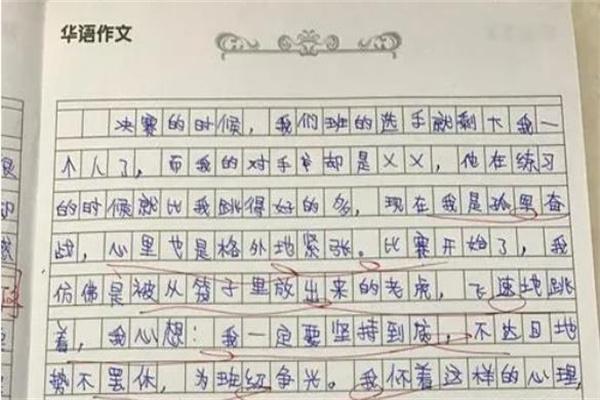 华语作文
决赛的时候，我们班的选手就剩下我一
个人了，而我的对手却是××，他在练习
的时候就比我跳得好的多，现在我是孤军奋
战，心里也是格外地紧张。比赛开始了，我
仿佛是被从笼子里放出来的老虎，飞速地跳
着，我心想：我一定要坚持到底，不达目地
势不罢休，为班级争光。我怀着这样的心理，